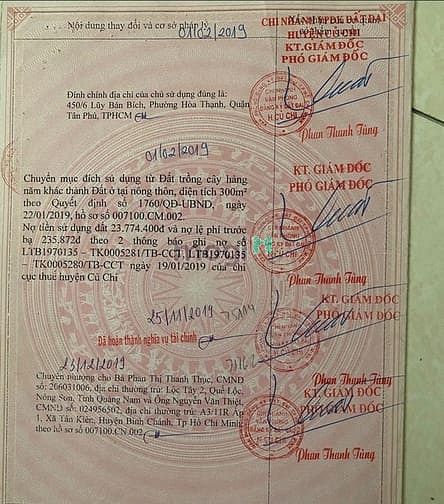 Nội dung thay đổi và cơ sở pháp lý
01/02/2019
CHI NHÁNH VPĐK ĐẤT ĐAI
HUYỆN CỦ CHI
KT. GIÁM ĐỐC
PHÓ GIÁM ĐỐC
Đính chính địa chỉ của chủ sử dụng đúng là:
450/6 Lũy Bán Bích, Phường Hòa Thạnh, Quận
Tân Phú, TPHCM
CHI NHÁNH
VĂN PHÒNG
ĐĂNG KÝ ĐẤT ĐAI
H.CỦ CHI
Phan Thanh Tùng
01/02/2019
Chuyển mục đích sử dụng từ Đất trồng cây hàng
năm khác thành Đất ở tại nông thôn, diện tích 300m²
theo Quyết định số 1760/QĐ-UBND, ngày
22/01/2019, hồ sơ số 007100.CM.002.
Nợ tiền sử dụng đất 23.774.400đ và nợ lệ phí trước
bạ 235.872đ theo 2 thông báo ghi nợ số
LTB1970135 – TK0005281/TB-CCT, LTB1970135
– TK0005280/TB-CCT ngày 19/01/2019 của chi
cục thuế huyện Củ Chi
KT. GIÁM ĐỐC
PHÓ GIÁM ĐỐC
H.CỦ CHI
Phan Thanh Tùng
25/11/2019
Đã hoàn thành nghĩa vụ tài chính
KT. GIÁM ĐỐC
PHÓ GIÁM ĐỐC
23/12/2019
Phan Thanh Tùng
Chuyển nhượng cho Bà Phan Thị Thanh Thục, CMND
số: 266031006, địa chỉ thường trú: Lộc Tây 2, Quế Lộc,
Nông Sơn, Tỉnh Quảng Nam và Ông Nguyễn Văn Thiệt,
CMND số: 024956502, địa chỉ thường trú: A3/11R Ấp
1, Xã Tân Kiên, Huyện Bình Chánh, Tp Hồ Chí Minh;
theo hồ sơ số 007100.CN.002
KT. GIÁM ĐỐC
PHÓ GIÁM ĐỐC
H.CỦ CHI
Phan Thanh Tùng